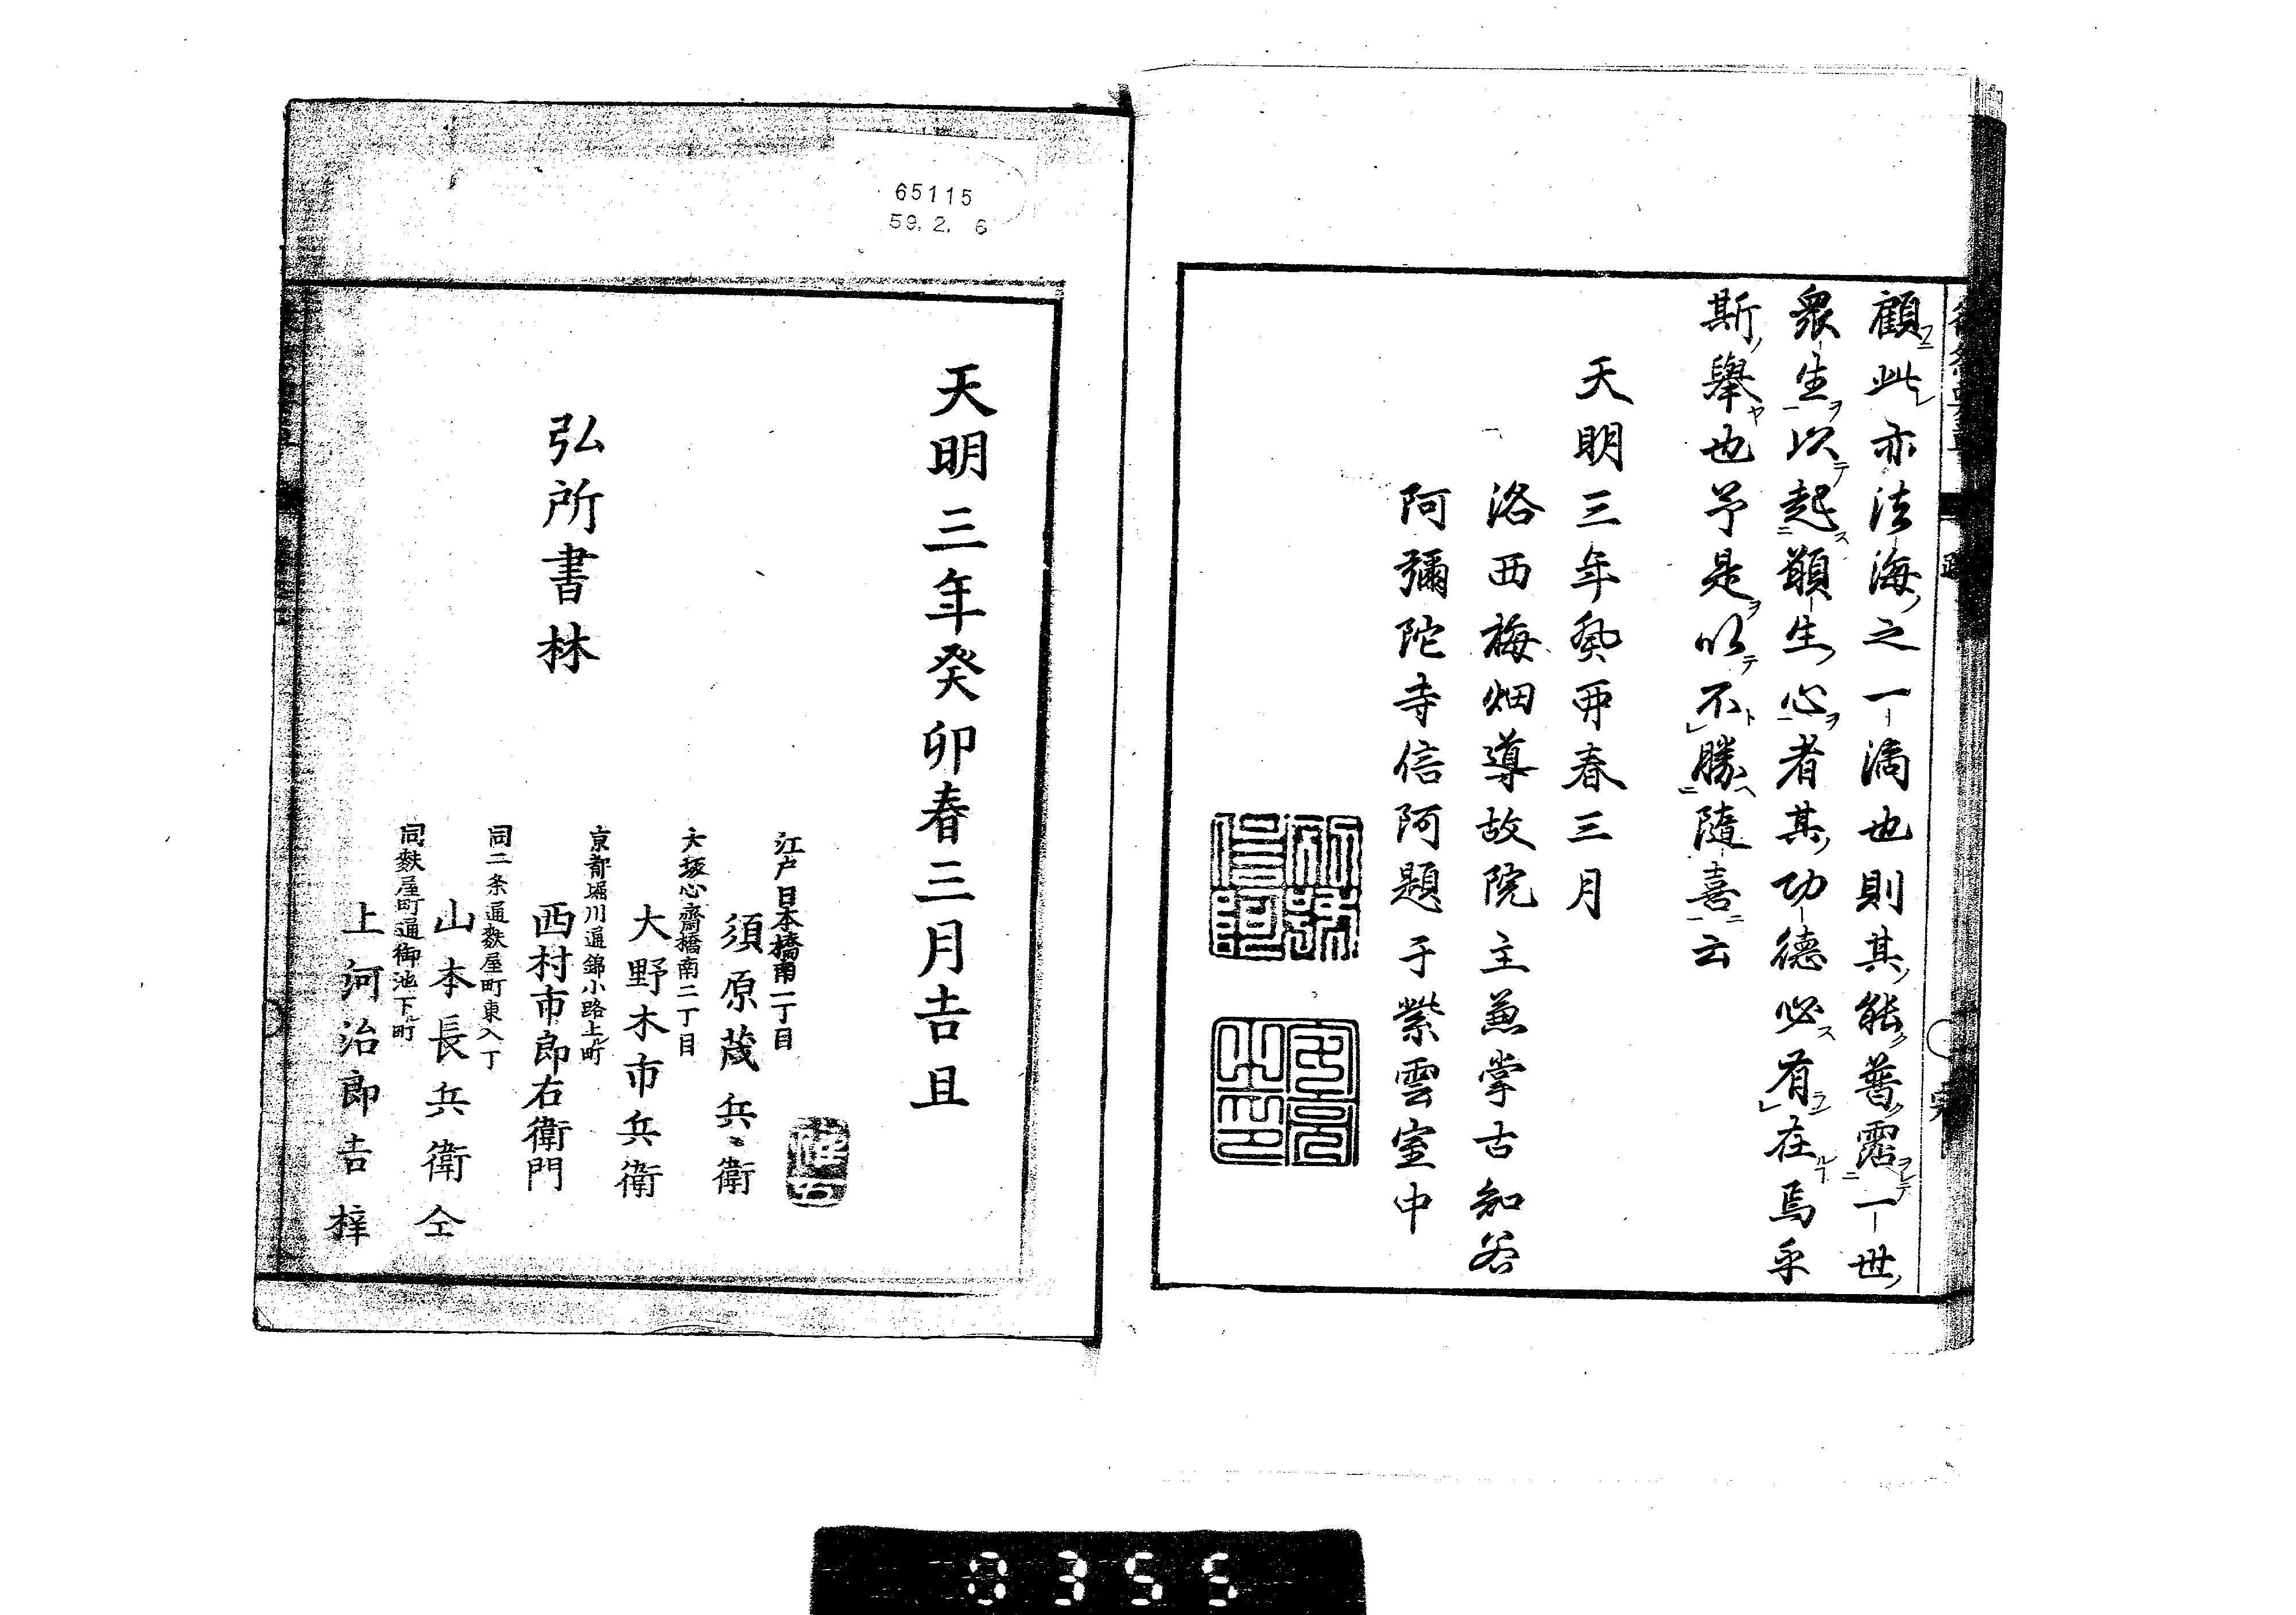 顧此亦法海之一滴也則其能普霑一世
衆生以起願生心者其功德必有在焉乎
斯舉也予是以不勝隨喜云
天明三年癸丣春三月
洛西梅畑導故院主兼掌古知谷
阿彌陀寺信阿題于紫雲室中
65115
59.2.6
天明三年癸卯春三月吉旦
弘所書林
江戸日本橋南一丁目
須原茂兵衛
大坂心齋橋南二丁目
大野木市兵衛
京都堀川通錦小路上ル町
西村市郎右衛門
同二条通麩屋町東入丁
山本長兵衛仝
同麩屋町通御池下ル町
上河治郎吉梓
0355